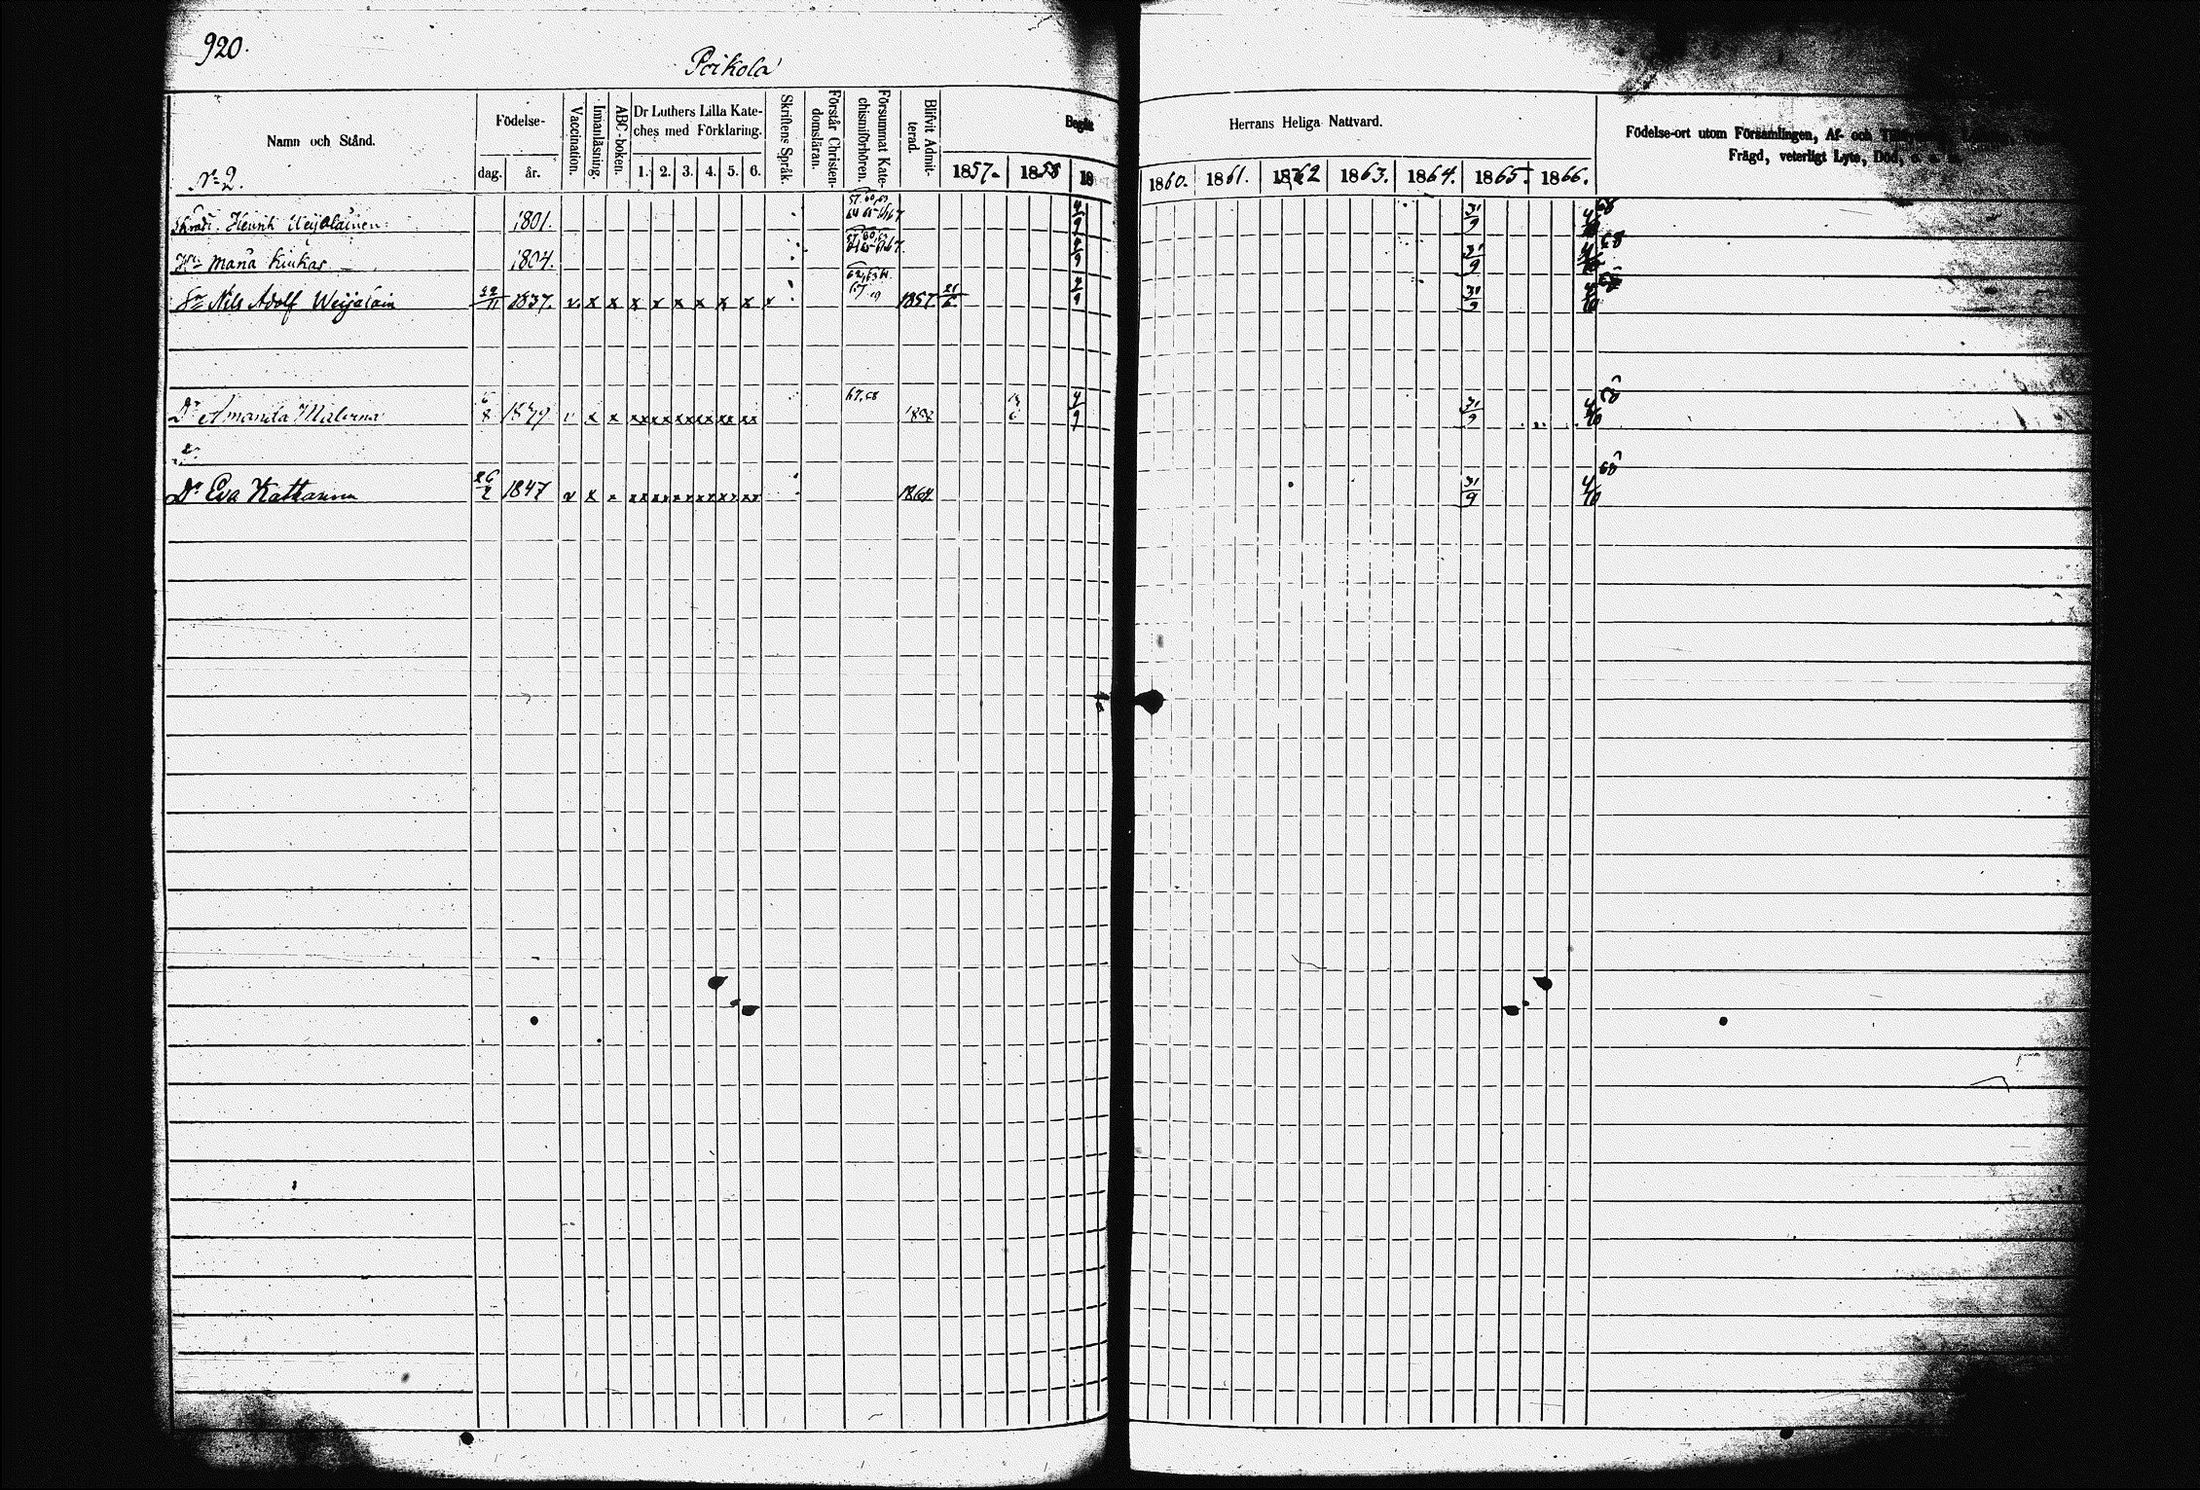 920.
Poikola
Namn och Stånd.
Födelse-
dag.
år.
Vaccination.
Innanläsning.
ABC-boken.
Dr Luthers Lilla Kate-
ches med Förklaring.
1. 2. 3. 4. 5. 6.
Skriftens Språk.
Förstår Christen-
domsläran.
Försummat Kate-
chismiförhören.
Blifvit Admit-
terad.
Begått
Herrans Heliga Nattvard.
1857. 1858 18
1860. 1861. 1862 1863. 1864. 1865 1866.
Födelse-ort utom Församlingen, Af- och
Frägd, veterligt Lyte, Död,
No 2.
Henrik 1801. 4/9 31/9 4/10 68
Hu Maria Kiukas 1804. 4/9 31/9 4/10 68
Sn Nils Adolf Weijalain 22/11 1837. v. x x x x x x x x x 1857 21/6 4/9 31/9 4/10 68
Dr Amanda 6/8 v x x xx xx xx xx xx xx 67,68 4/9 31/9 4/10 68
Dr Eva Katharina 26/2 1847 v x x xx xx xx xx xx xx 1864. 31/9 4/10 68